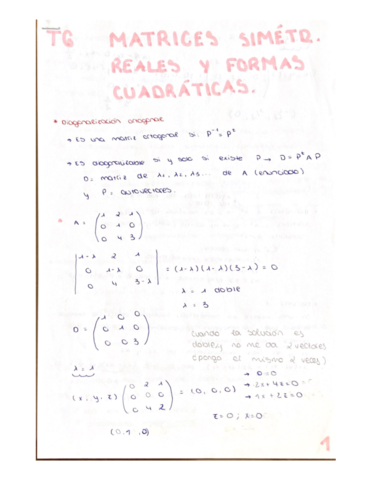 T6 MATRICES SIMÉTR.
REALES Y FORMAS
CUADRÁTICAS.
* Diagonalización ortogonal
→ Es una matriz ortogonal si P⁻¹ = Pᵗ
→ Es diagonalizable si y solo si existe P → D = Pᵗ A P
D = matriz de λ₁, λ₂, λ₃... de A (enunciado)
y P = autovectores.
* A = ( 1 2 1
0 1 0
0 4 3 )
| 1-λ 2 1
0 1-λ 0
0 4 3-λ | = (1-λ)(1-λ)(3-λ) = 0
λ = 1 doble
λ = 3
D = ( 1 0 0
0 1 0
0 0 3 )
cuando la solución es
doble y no me da 2 vectores
(pongo el mismo 2 veces)
λ = 1
(x, y, z) ( 0 2 1
0 0 0
0 4 2 ) = (0, 0, 0)
→ 0=0
→ 2x+4z=0
→ 1x+2z=0
z=0; x=0
(0, 1, 0)
1